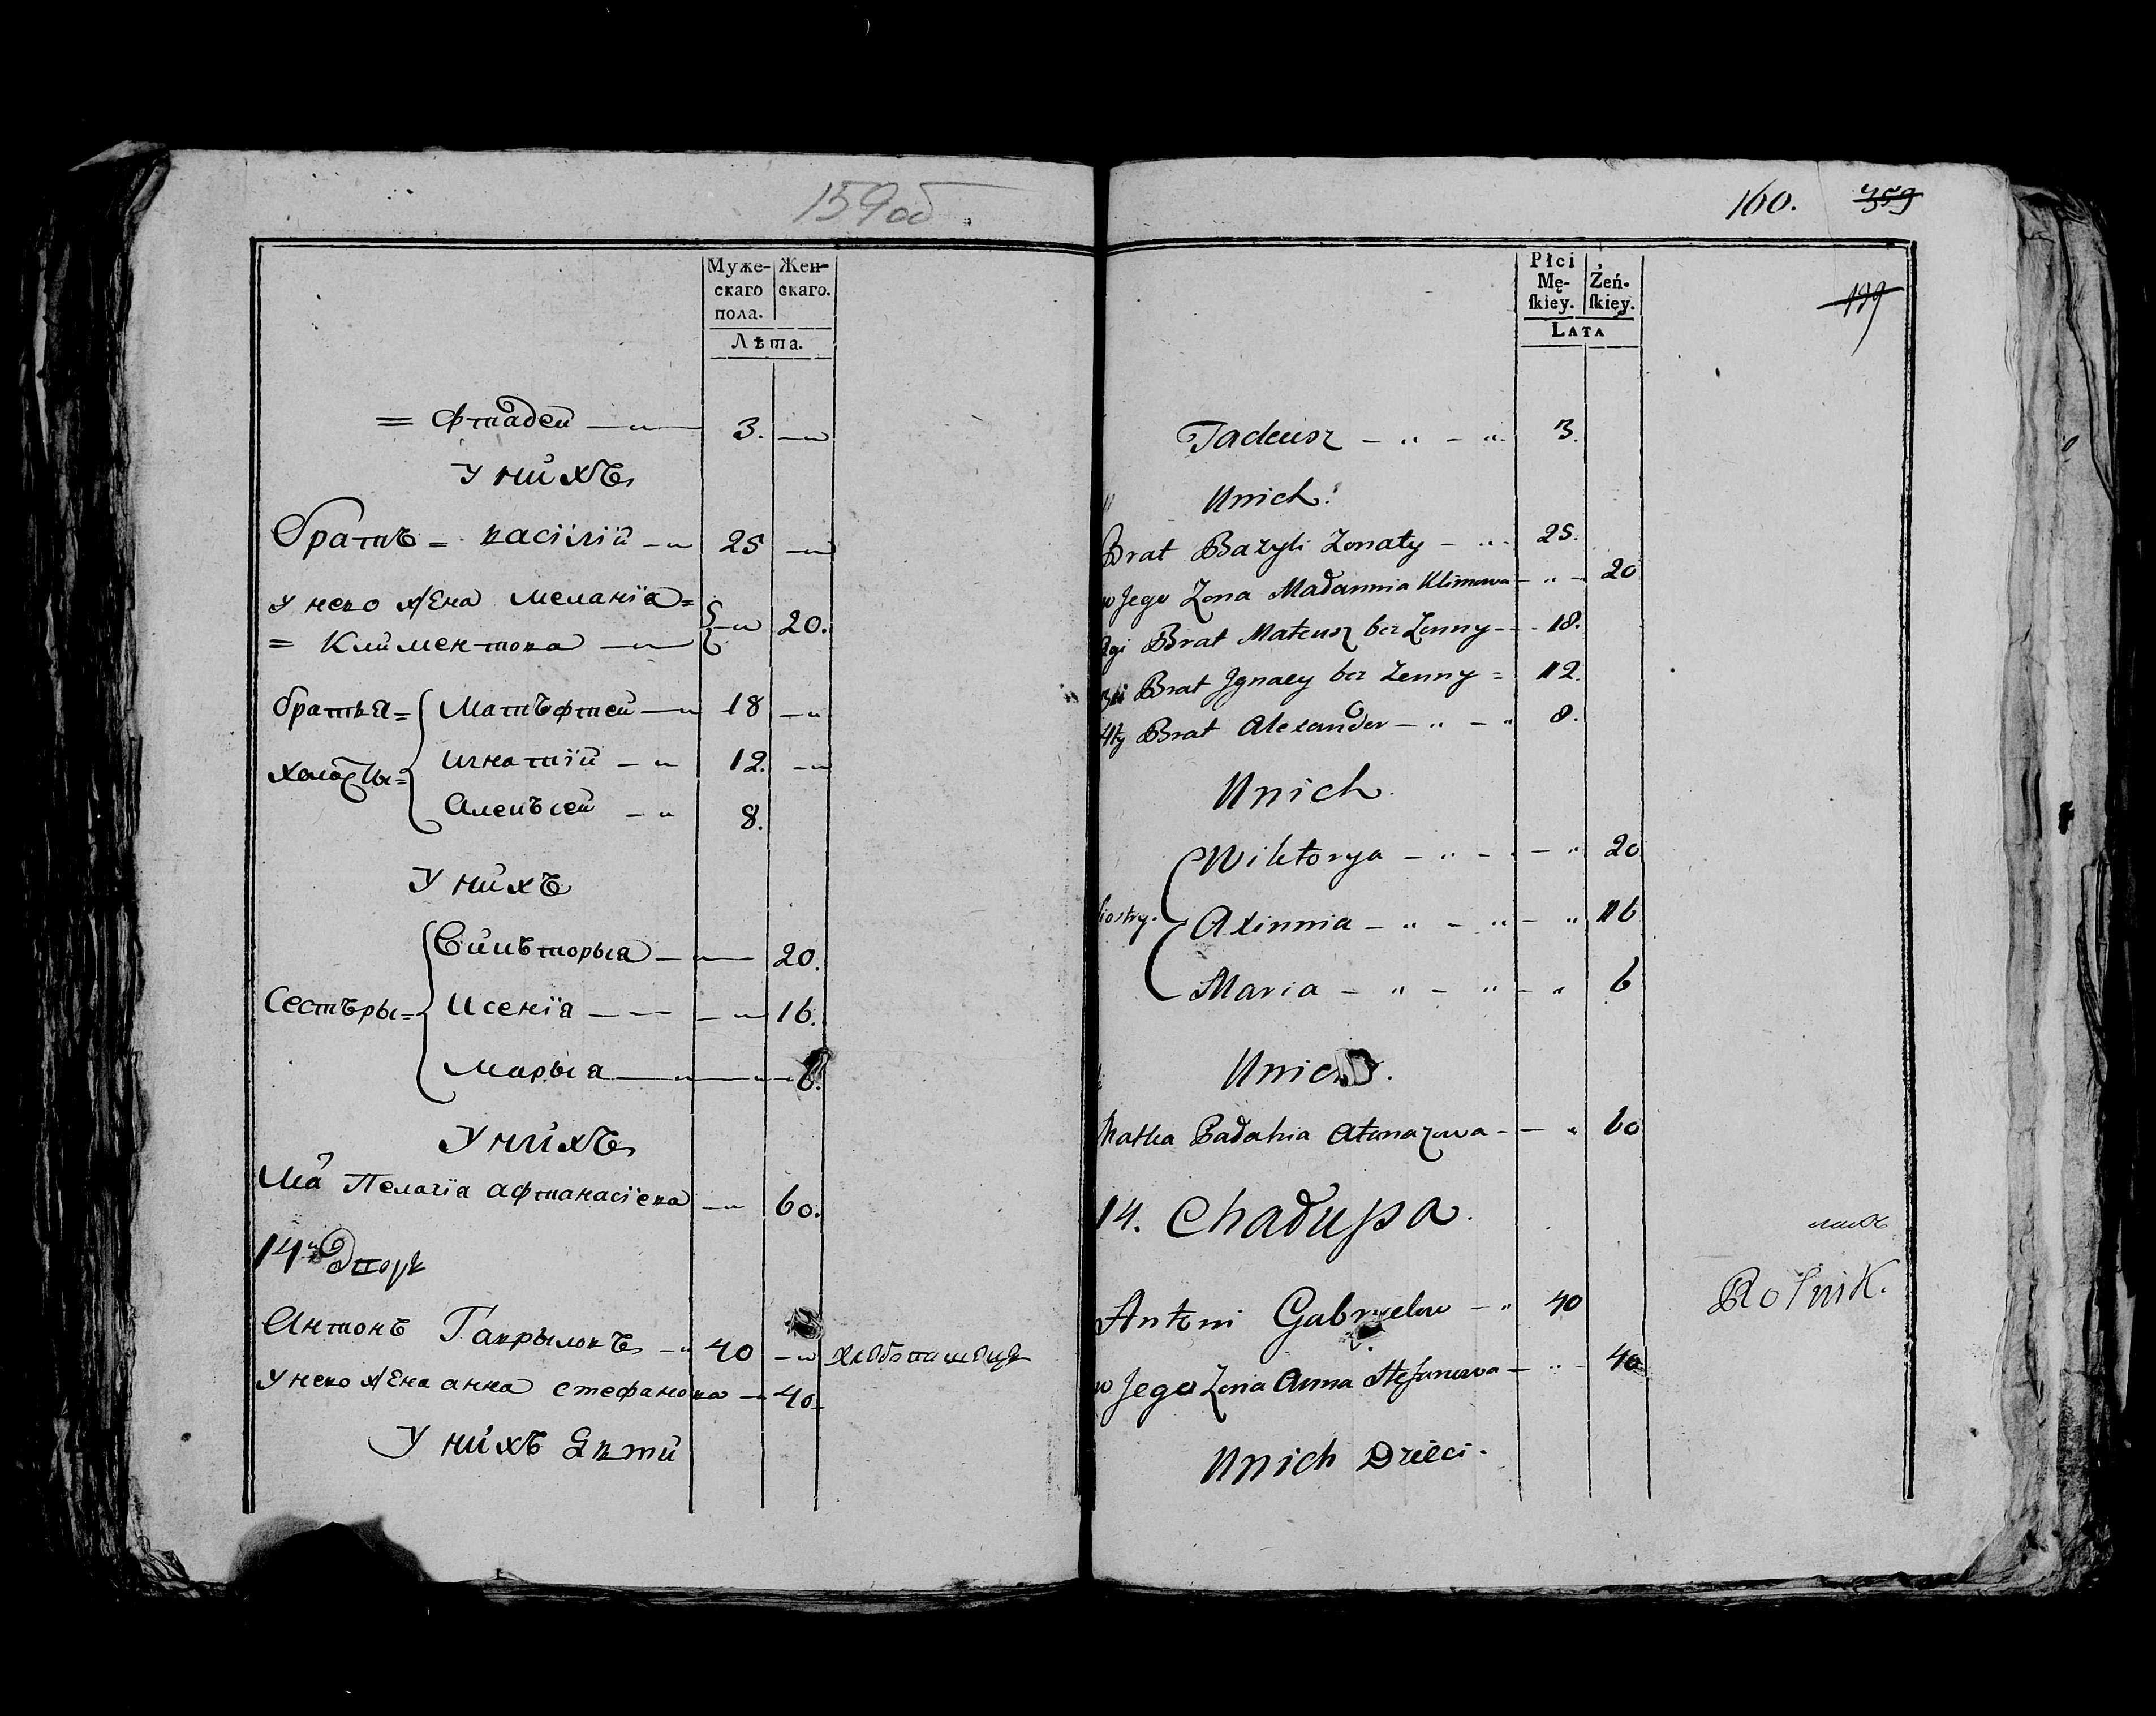 159об.
Муже- Жен-
скаго скаго.
пола.
Лѣта.
= Фтадеи 3.
У нихъ
братъ = василій 25
У него жена меланія =
= Климентова 20.
братья = Матъфтеи 18
холосты = игнатій 12.
Алекъсей 8.
У нихъ
Викъторыя 20.
Сестъры = Ксенія 16.
Марыя 6.
У нихъ
Ма Пелагія афтанасіева 60.
14й Дворъ
Антонъ Гаврыловъ 40 хлѣбопашецъ
У него жена анна стефанова 40
У нихъ Дѣти
160. 359
199
Płci
Mę- Żeń-
ſkiey. ſkiey.
LATA
Tadeusz 3.
Unich
Brat Bazyli Zonaty 25.
u Jego Zona Madannia Klimowa 20
2gi Brat Mateusz bez Zenny 18.
3ci Brat Jgnacy bez Zenny = 12.
4ty Brat Alexander 8.
Unich
Wiktorya 20
siostry. Axinnia 16
Maria 6
Unich.
Matka Badahia Atanazowa 60
14. Chadupa.
Antoni Gabryelow 40 Rolnik.
u Jego Zona Anna Stefanowa 40
Unich Dzieci.